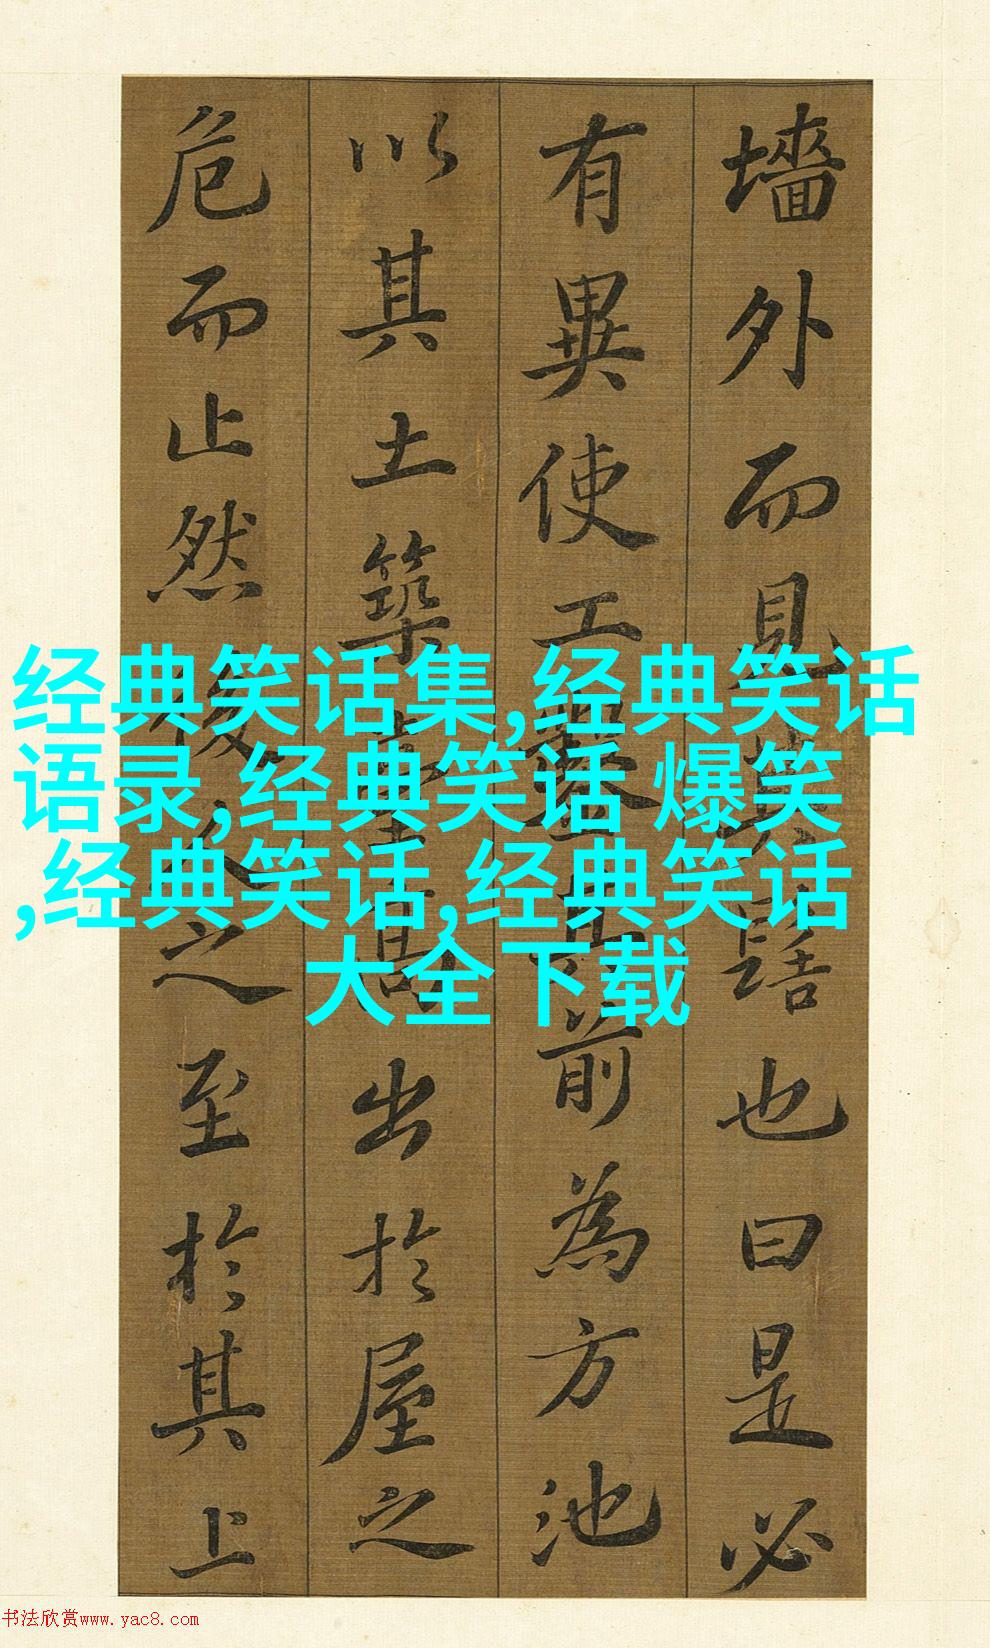 墻外而見其髻也曰是必
有異使工鑿其前為方池
以其土築臺高出於屋之
危而止然後人之至於其上
经典笑话集,经典笑话
语录,经典笑话 爆笑
,经典笑话,经典笑话
大全下载
书法欣赏www.yac8.com